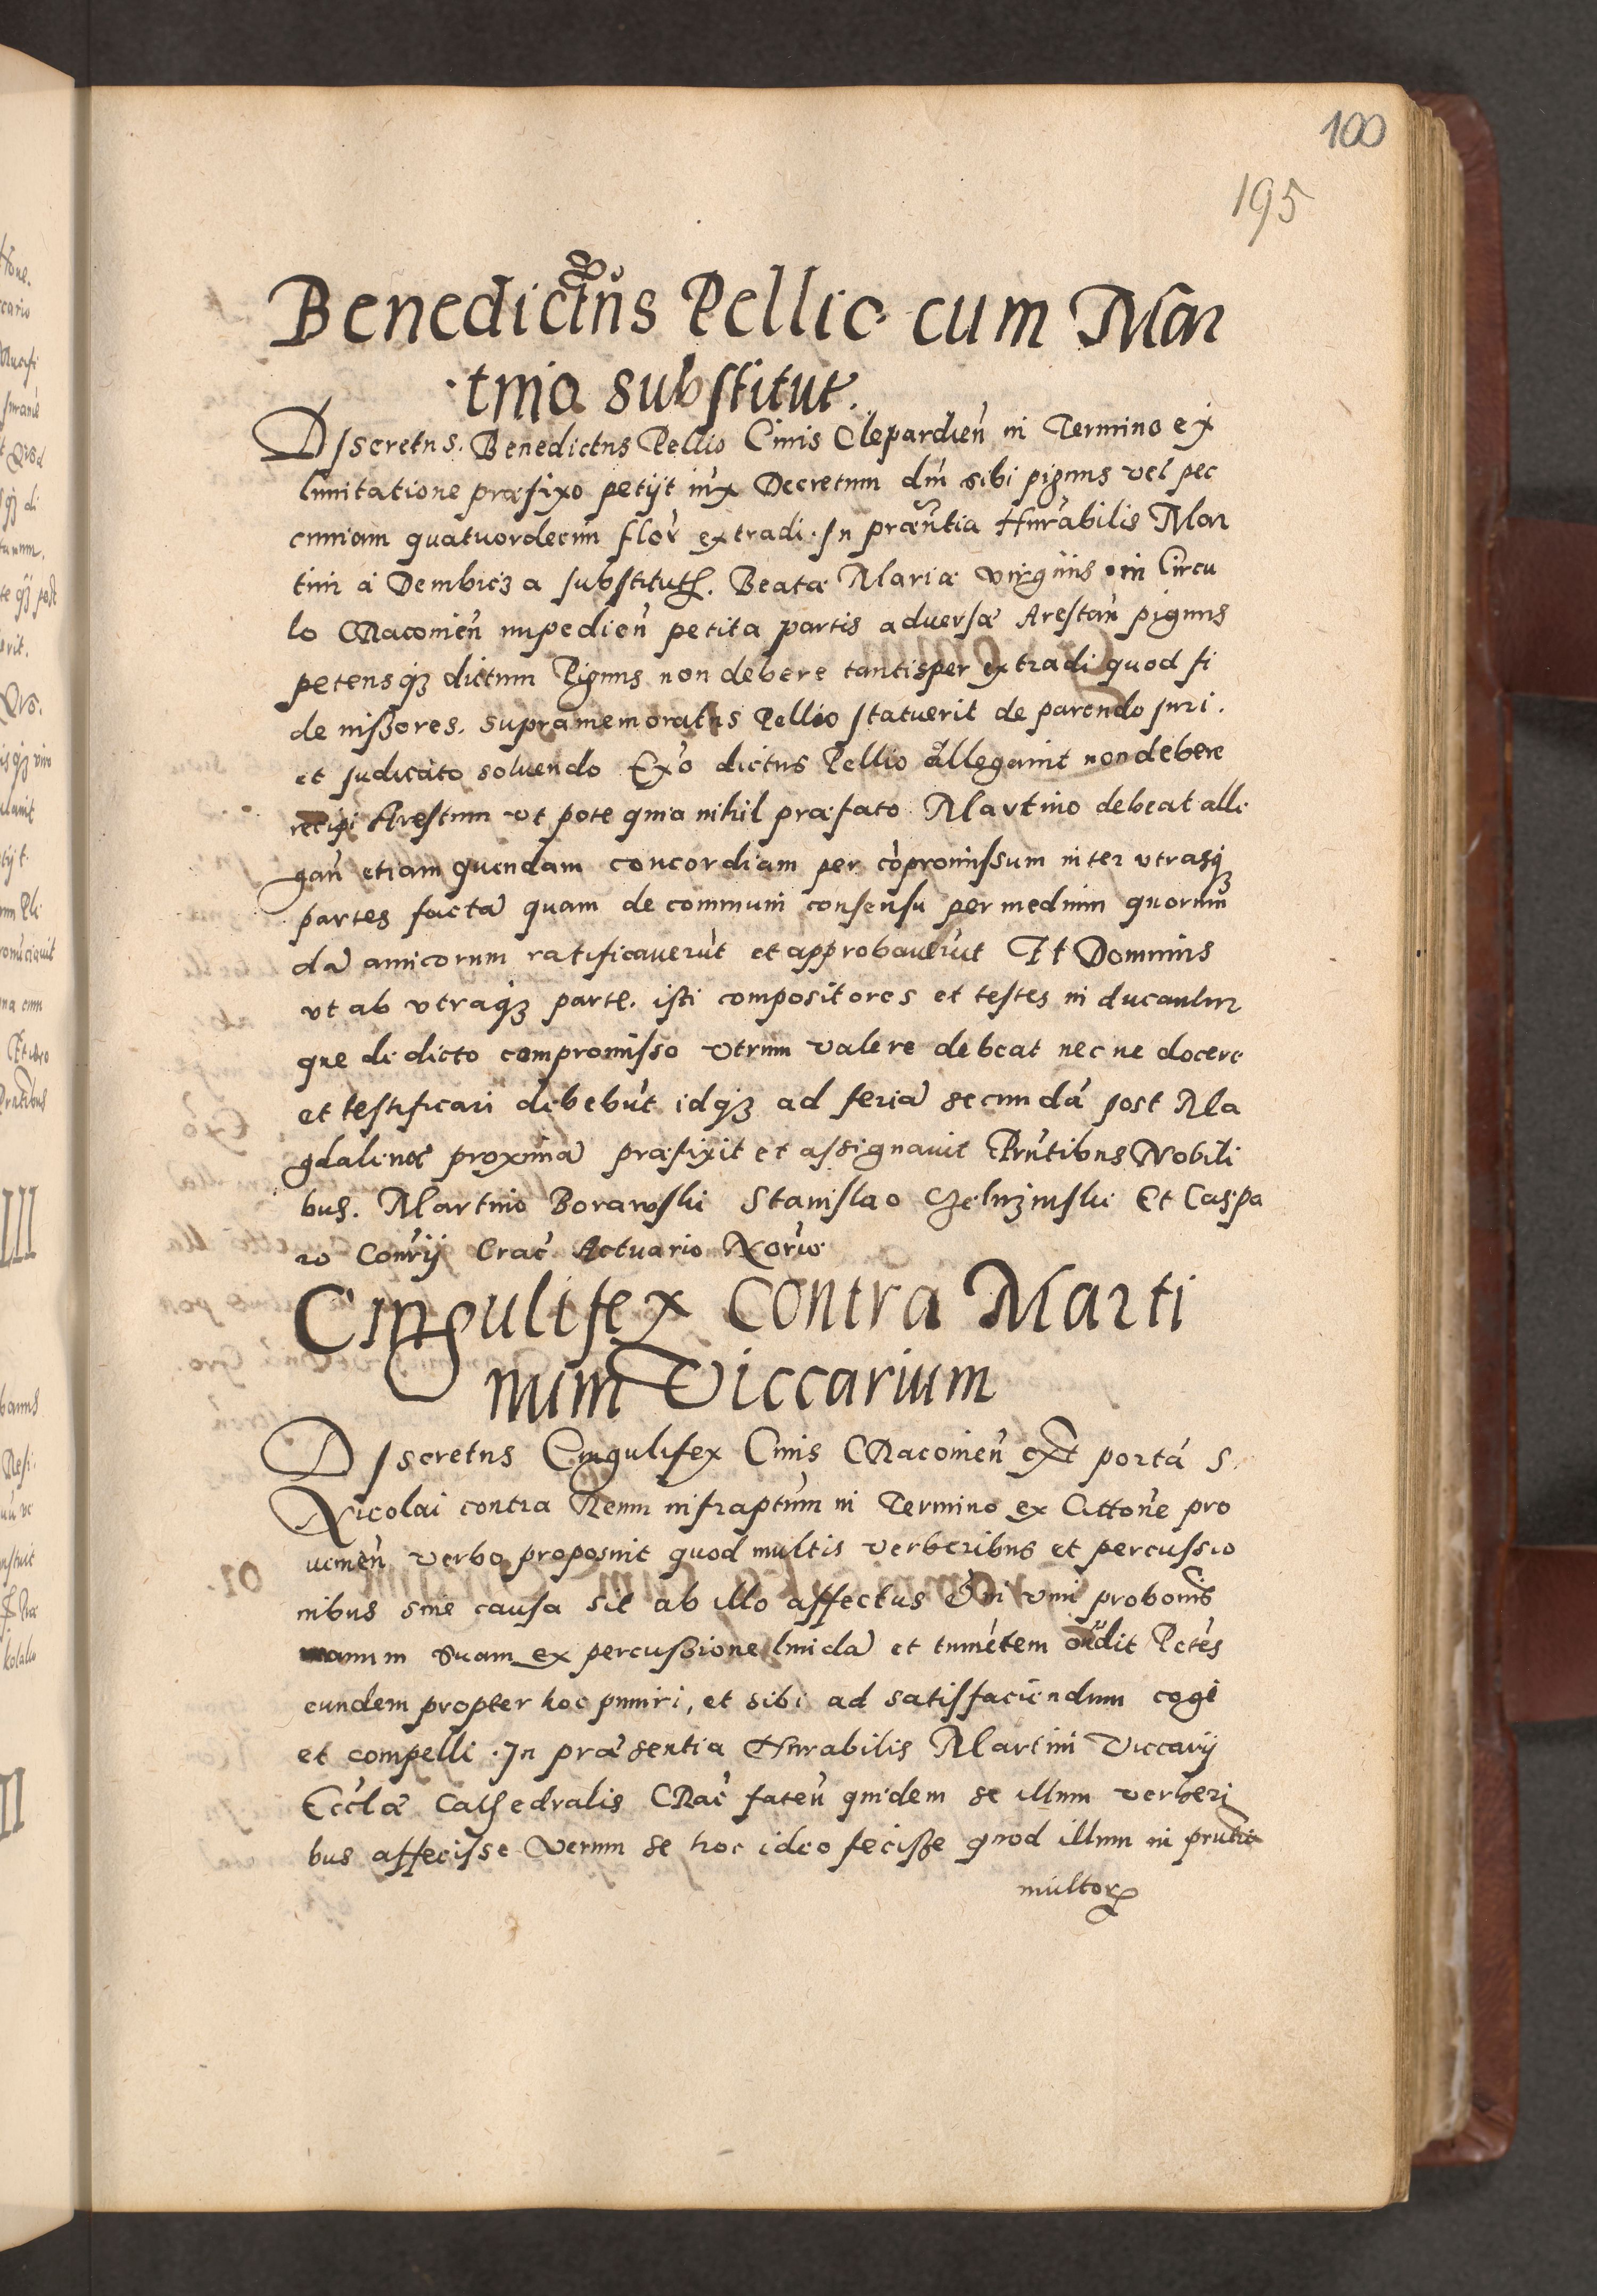 100
195
Benedictus Pellio cum Mar
tino substitut.
Discretus. Benedictus Pellio Ciuis Clepardień in Termino ex
limitatione præfixo petijt iux Decretum dni sibi pignus vel pec
cuniam quatuordecim flor extradi. In præntia Hnrabilis Mar
tini á Dembicza substituth. Beatæ Mariæ virginis in Circu
lo CRacouień impedień petita partis aduersæ Arestań pignus
petensqȝ dictum Pignus non debere tantisper extradi quod fi
de iussores. supramemoratus Pellio statuerit de parendo juri.
et judicato soluendo Exo dictus Pellio allegauit non debere
recipi Arestum vt pote quia nihil præfato Martino debeat alle
gań etiam quendam concordiam per cōpromissum inter vtrasqȝ
partes factā quam de communi consensu per medium quorum
dā amicorum ratificauerūt et approbauerūt Et Dominus
vt ab vtraqȝ parte. isti compositores et testes inducantur
que de dicto compromisso vtrum valere debeat nec ne docere
et testificari debebūt idqȝ ad feriā secundā post Ma
gdalenæ proximā præfixit et assignauit Prntibus Nobili
bus. Martino Borawski Stanislao Zeluzinski Et Caspa
ro Conrij Crać Actuario Norio
Cingulifex Contra Marti
num Viccarium
Discretus Cingulifex Ciuis CRacouień ext portā S.
Nicolai contra Reum infraptum in Termino ex Cittone pro
uenień verbo proposuit quod multis verberibus et percussio
nibus sine causa sit ab illo affectus Et in vim probonis
manum suam ex percussione liuidā et tumētem ondit Petēs
eundem propter hoc puniri, et sibi ad satisfaciendum cogi
et compelli. In præsentia Hnrabilis Martini Viccarij
Ecclæ Cathedralis CRać fateń quidem se illum verberi
bus affecisse Verum se hoc ideo fecisse quod illum in prntia
multorꝝ